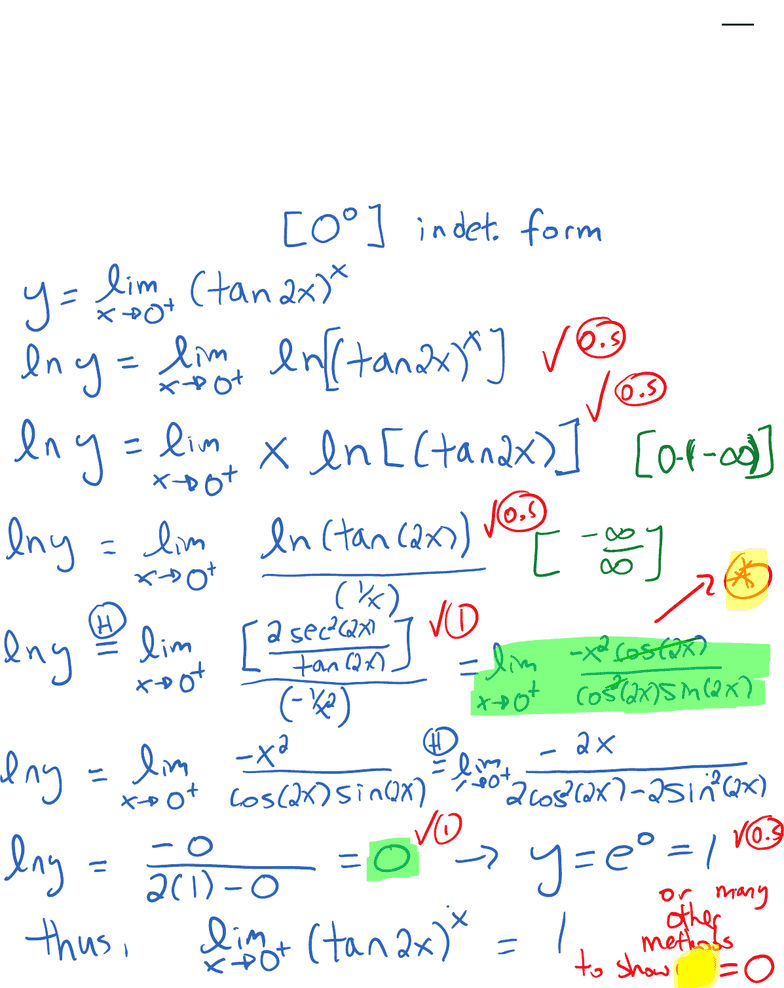 [0⁰] indet. form
y = lim x→0⁺ (tan 2x)ˣ
ln y = lim x→0⁺ ln[(tan2x)ˣ] √ 0.5
ln y = lim x→0⁺ x ln[(tan2x)] √ 0.5 [0·(-∞)]
ln y = lim x→0⁺ ln(tan(2x)) / (1/x) √ 0.5 [-∞/∞]
ln y =(H) lim x→0⁺ [2sec²(2x) / tan(2x)] / (-1/x²) √ 1 = lim x→0⁺ -x² cos(2x) / cos²(2x) sin(2x) *
ln y = lim x→0⁺ -x² / cos(2x) sin(2x) =(H) lim x→0⁺ -2x / 2cos²(2x) - 2sin²(2x)
ln y = -0 / 2(1) - 0 = 0 √ 1 → y = e⁰ = 1 √ 0.5
thus, lim x→0⁺ (tan 2x)ˣ = 1
or many
other
methods
to show = 0